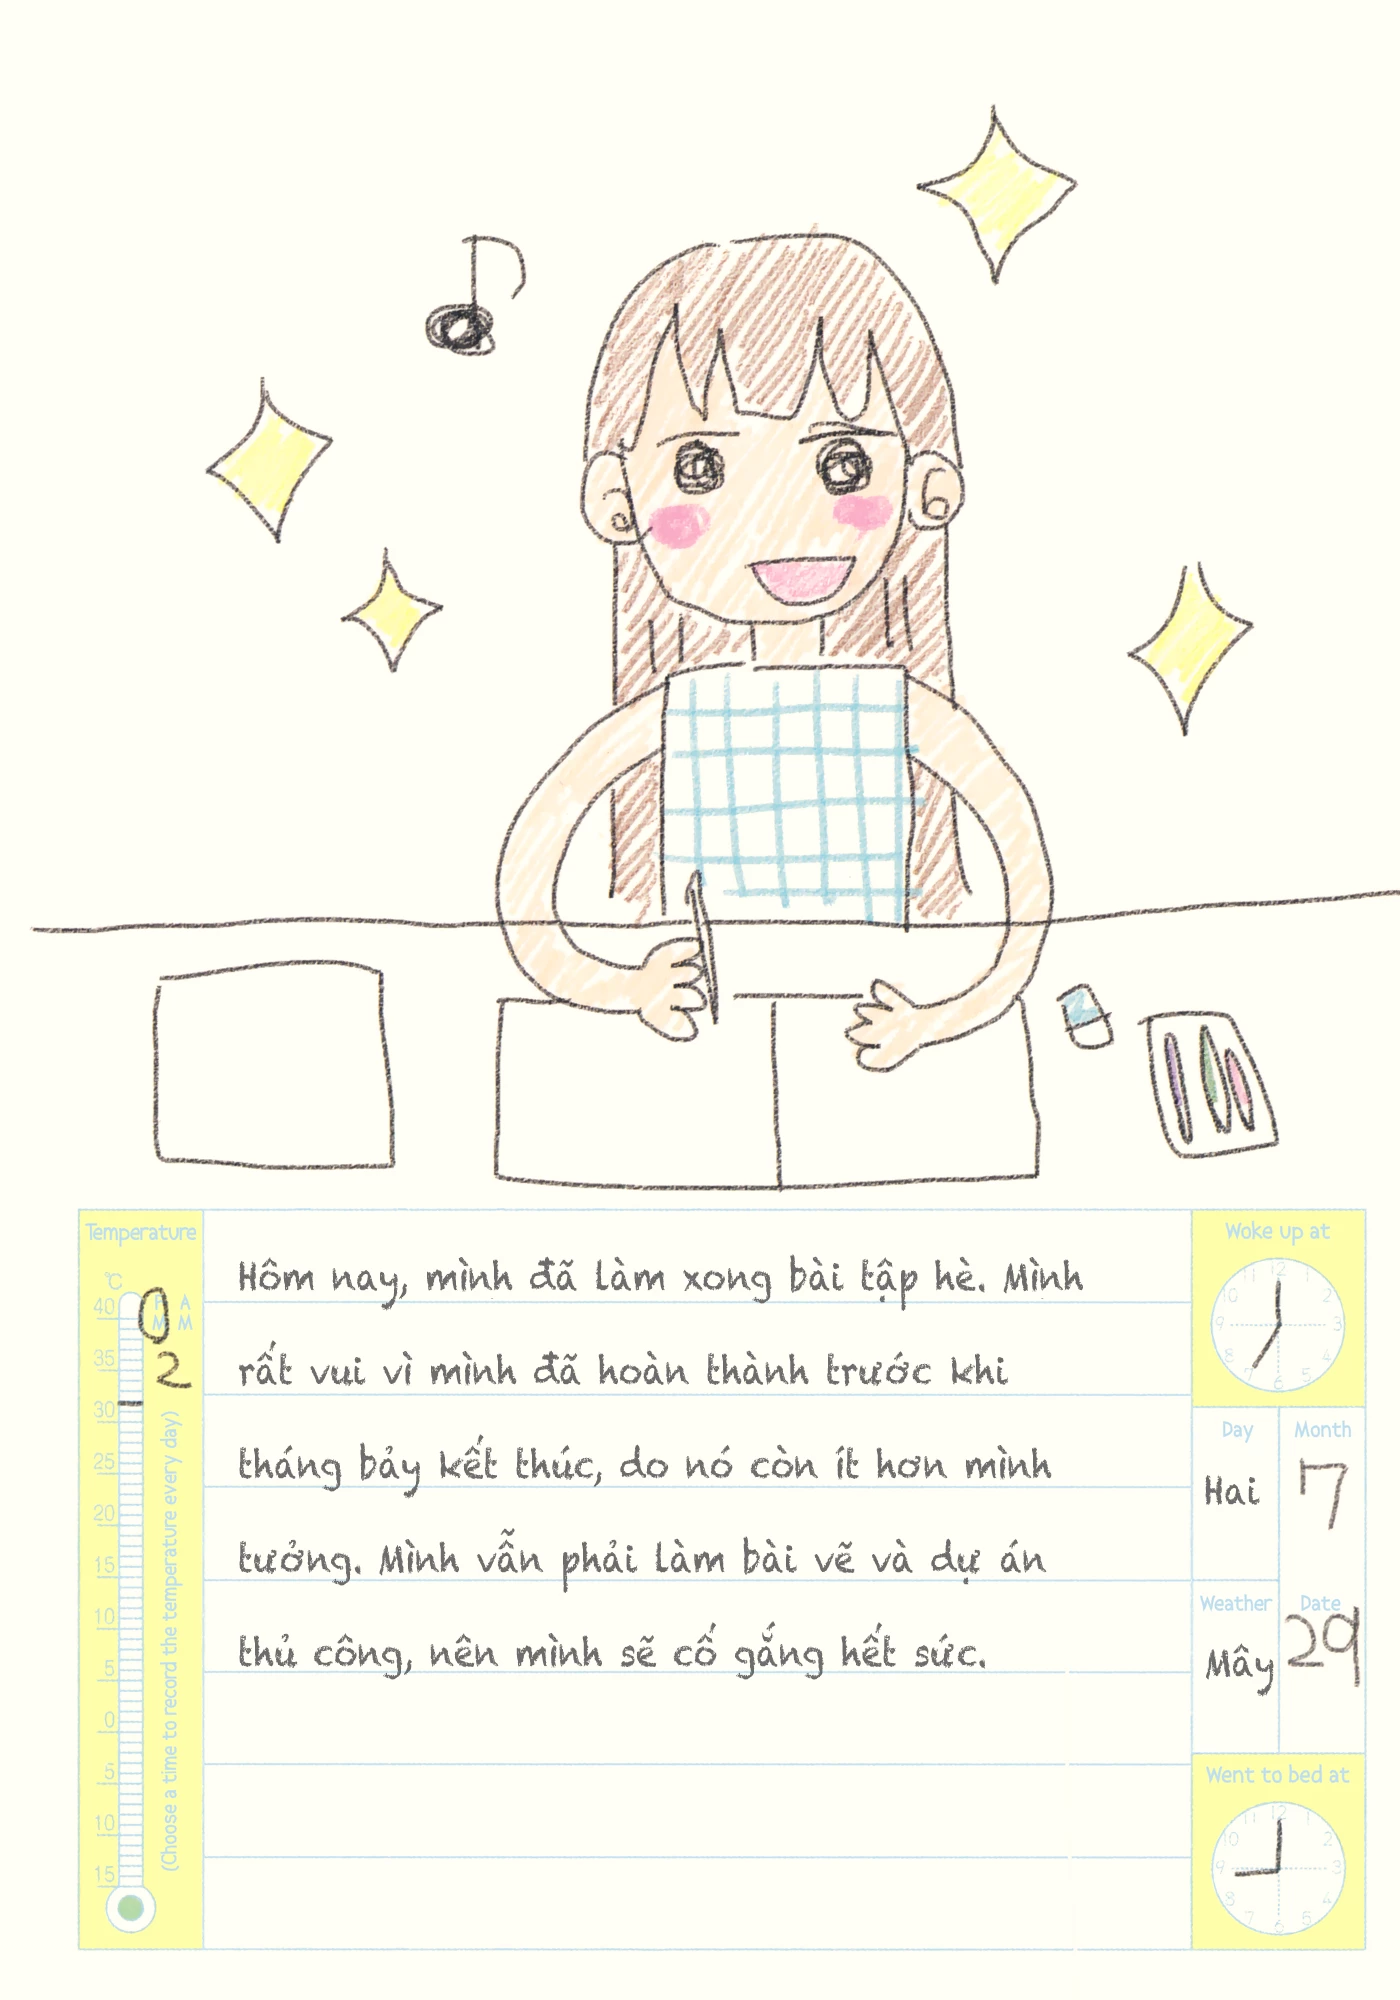 Temperature
°C
40
35
30
25
20
15
10
5
0
5
10
15
P A
M M
2
(Choose a time to record the temperature every day)
Hôm nay, mình đã làm xong bài tập hè. Mình
rất vui vì mình đã hoàn thành trước khi
tháng bảy kết thúc, do nó còn ít hơn mình
tưởng. Mình vẫn phải làm bài vẽ và dự án
thủ công, nên mình sẽ cố gắng hết sức.
Woke up at
11 12 1
10 2
9 3
8 4
7 6 5
Day
Hai
Month
7
Weather
Mây
Date
29
Went to bed at
11 12 1
10 2
9 3
8 4
7 6 5